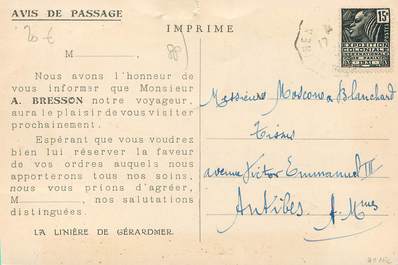 AVIS DE PASSAGE
IMPRIME
20 €
M
Nous avons l'honneur de
vous informer que Monsieur
A. BRESSON notre voyageur,
aura le plaisir de vous visiter
prochainement.
Espérant que vous voudrez
bien lui réserver la faveur
de vos ordres auquels nous
apporterons tous nos soins,
nous vous prions d'agréer,
M, nos salutations
distinguées.
LA LINIÈRE DE GÉRARDMER.
15c
POSTES
EXPOSITION
COLONIALE
INTERNATIONALE
PARIS
1931
Messieurs Moscow & Blanchard
Tissus
avenue Victor Emmanuel III
Antibes
A. Mmes